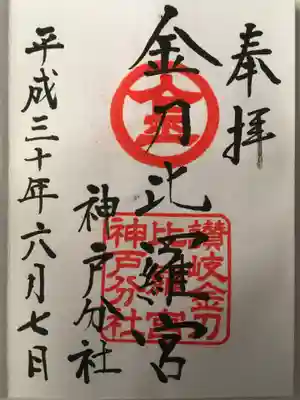 奉拝
金刀比羅宮
神戸分社
平成三十年六月七日
讃岐金刀
比羅宮
神戸分社